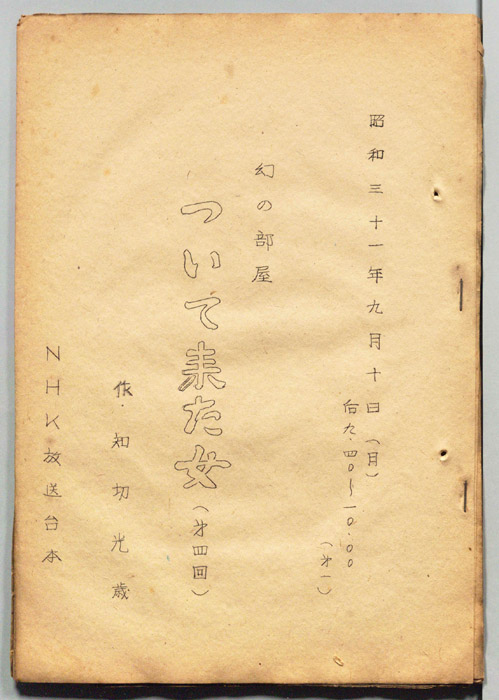 昭和三十一年九月十日（月）
后九.四〇〜一〇.〇〇
（才一）
幻の部屋
ついて来た女（才四回）
作・知切光歳
NHK放送台本